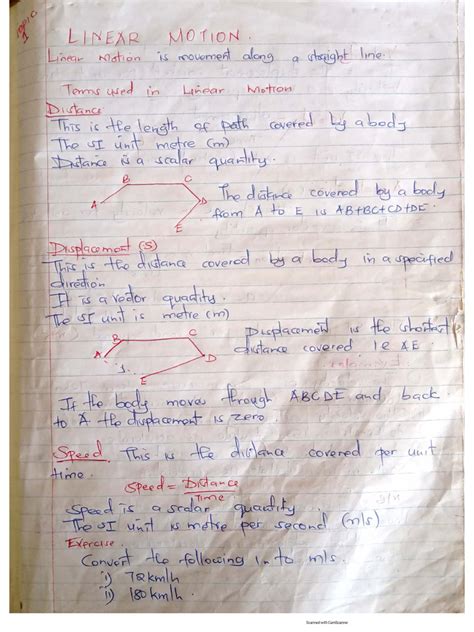 TOPIC
1
LINEAR MOTION.
Linear Motion is movement along a straight line.
Terms used in Linear Motion
Distance
This is the length of path covered by a body
The SI unit metre (m)
Distance is a scalar quantity.
A B C D E
The distance covered by a body
from A to E is AB+BC+CD+DE
Displacement (S)
This is the distance covered by a body in a specified
direction
It is a vector quantity.
The SI unit is metre (m)
A B C D E
S
Displacement is the shortest
distance covered i.e AE
If the body moves through ABCDE and back
to A the displacement is zero.
Speed. This is the distance covered per unit
time.
Speed = Distance
Time
Speed is a scalar quantity.
The SI unit is metre per second (m/s)
Exercise.
Convert the following in to m/s.
i) 72km/h
ii) 180km/h
Scanned with CamScanner